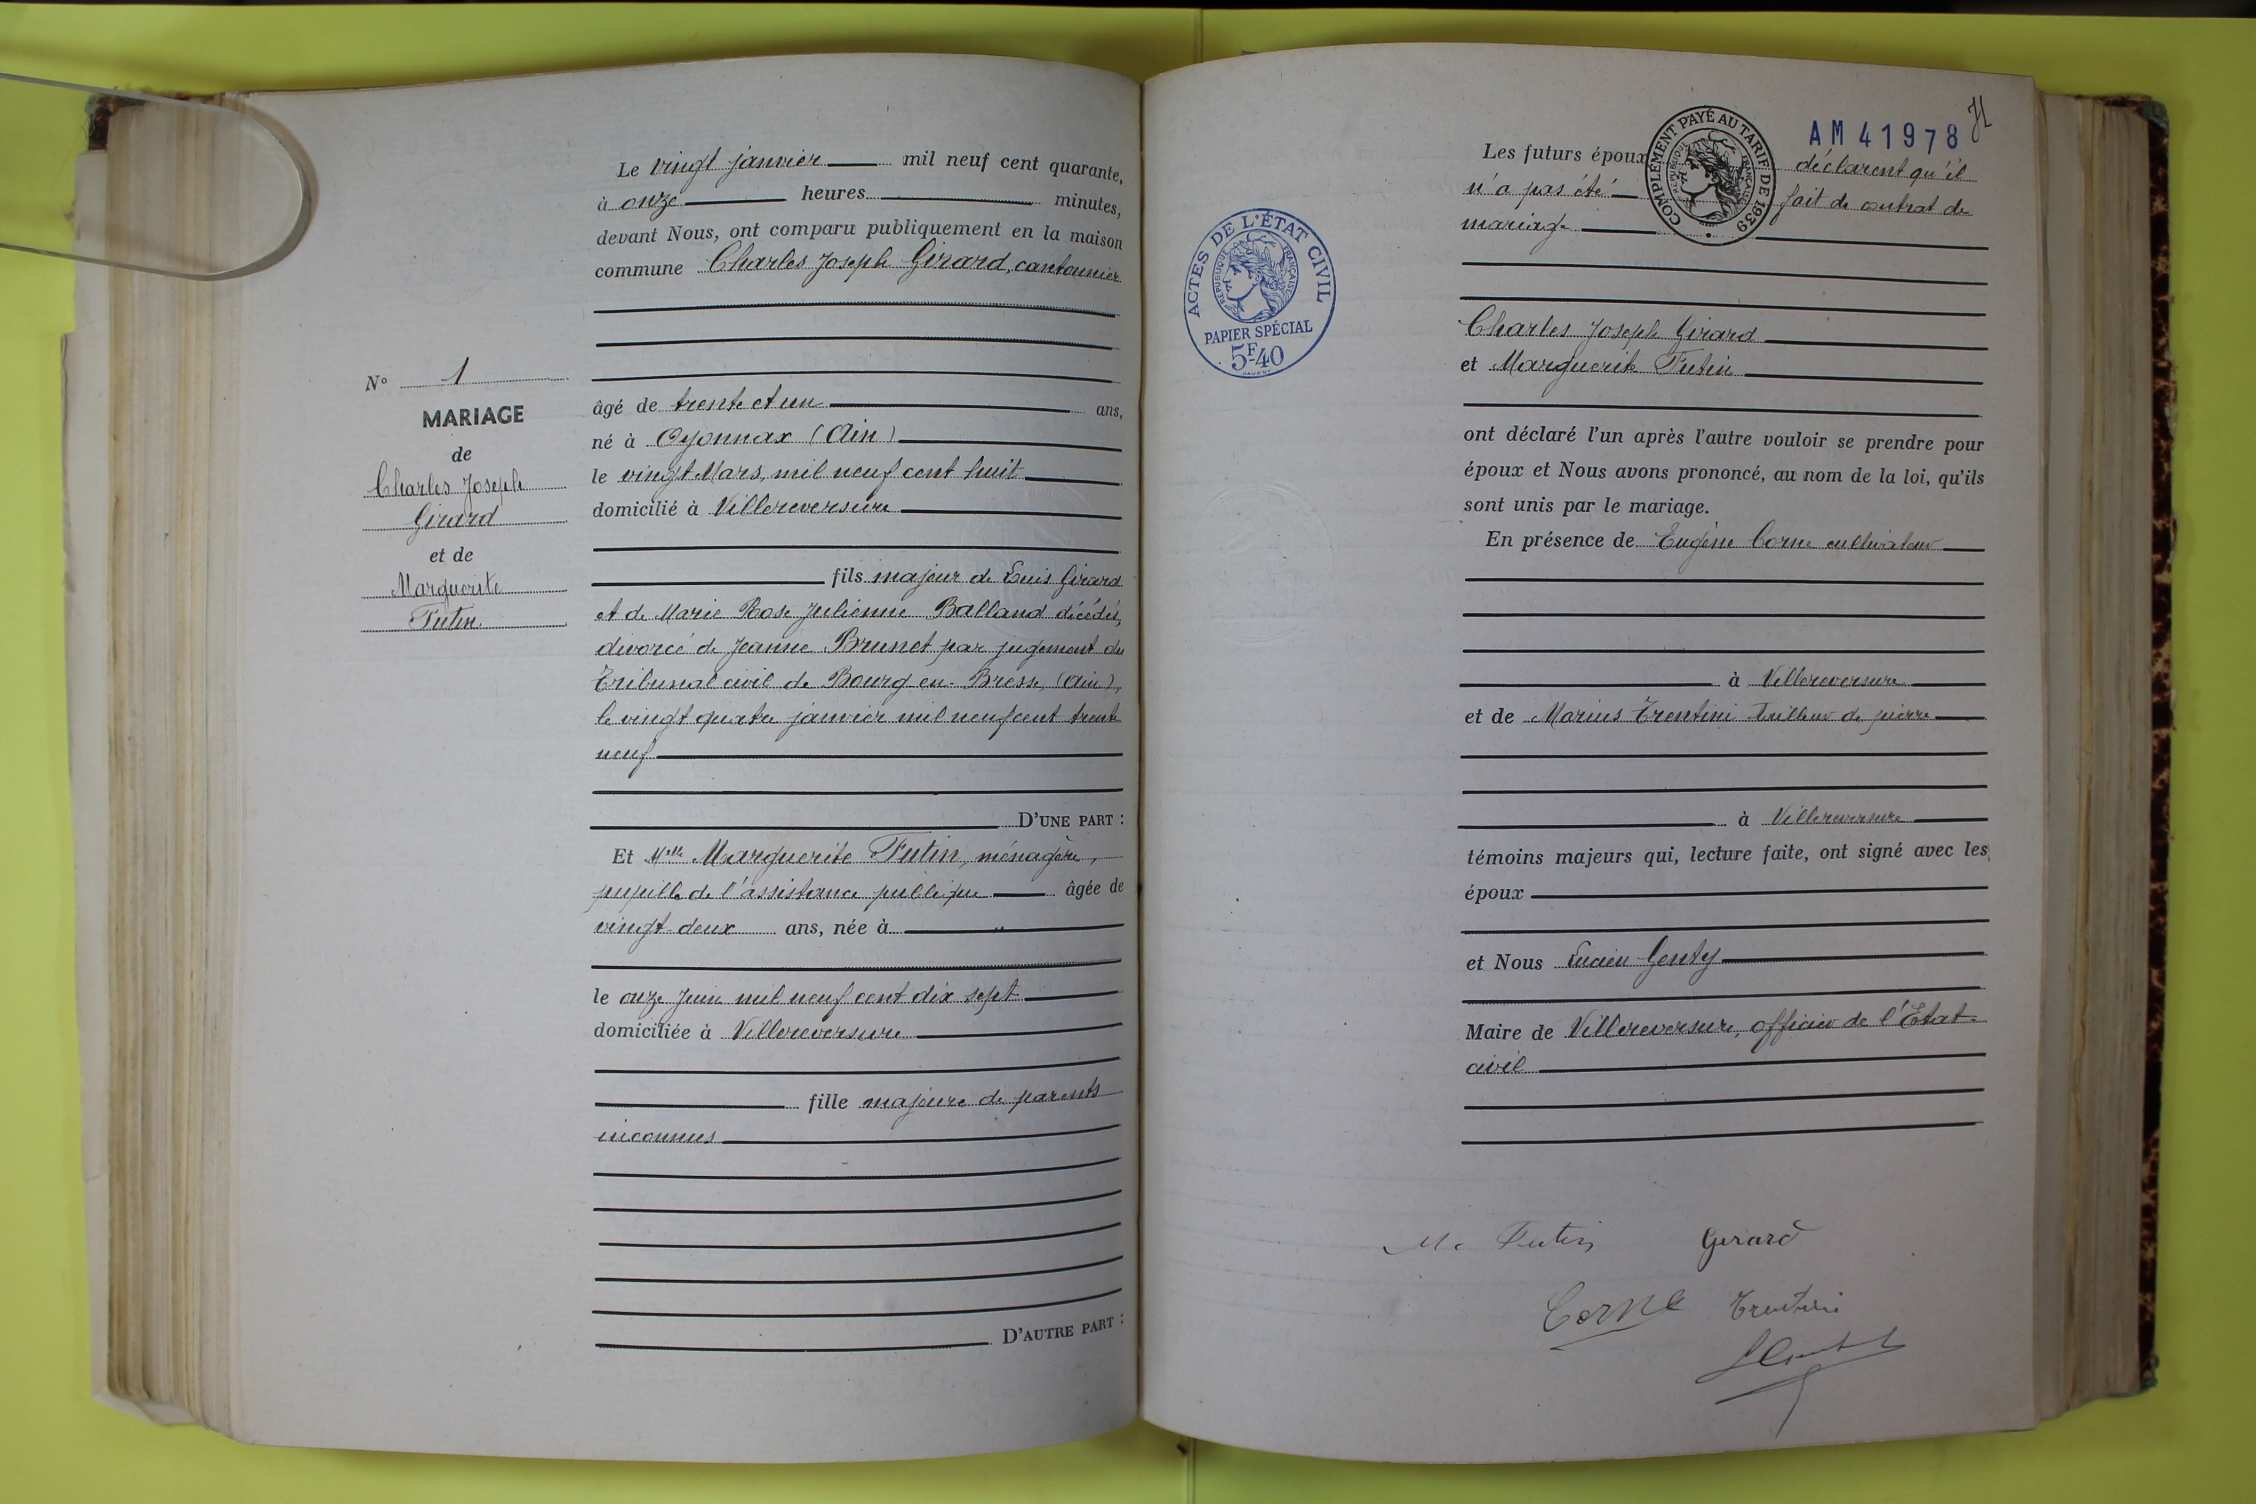 N° 1
MARIAGE
de
Charles Joseph
Girard
et de
Marguerite
Futin.
Le vingt janvier mil neuf cent quarante,
à onze heures minutes,
devant Nous, ont comparu publiquement en la maison
commune Charles Joseph Girard, cantonnier
âgé de trente et un ans,
né à Oyonnax (Ain)
le vingt Mars, mil neuf cent huit
domicilié à Villereversure
fils majeur de Louis Girard
et de Marie Rose Julienne Balland décédés,
divorcé de Jeanne Brunet par jugement du
Tribunal civil de Bourg-en-Bresse, (Ain),
le vingt quatre janvier mil neuf cent trente
neuf
D'UNE PART :
Et Melle Marguerite Futin, ménagère,
pupille de l'assistance publique âgée de
vingt-deux ans, née à "
le onze Juin mil neuf cent dix sept
domiciliée à Villereversure
fille majeure de parents
inconnus
D'AUTRE PART :
ACTES DE L'ÉTAT CIVIL
RÉPUBLIQUE FRANÇAISE
PAPIER SPÉCIAL
5F40
COMPLÉMENT PAYÉ AU TARIF DE 1939
RÉPUBLIQUE FRANÇAISE
AM 41978
Les futurs époux déclarent qu'il
n'a pas été fait de contrat de
mariage
Charles Joseph Girard
et Marguerite Futin
ont déclaré l'un après l'autre vouloir se prendre pour
époux et Nous avons prononcé, au nom de la loi, qu'ils
sont unis par le mariage.
En présence de Eugène Corne cultivateur
à Villereversure
et de Marius Trentini Tailleur de pierre
à Villereversure
témoins majeurs qui, lecture faite, ont signé avec les
époux
et Nous Lucien Genty
Maire de Villereversure, officier de l'Etat-
civil
M. Futin Girard
Corne Trentini